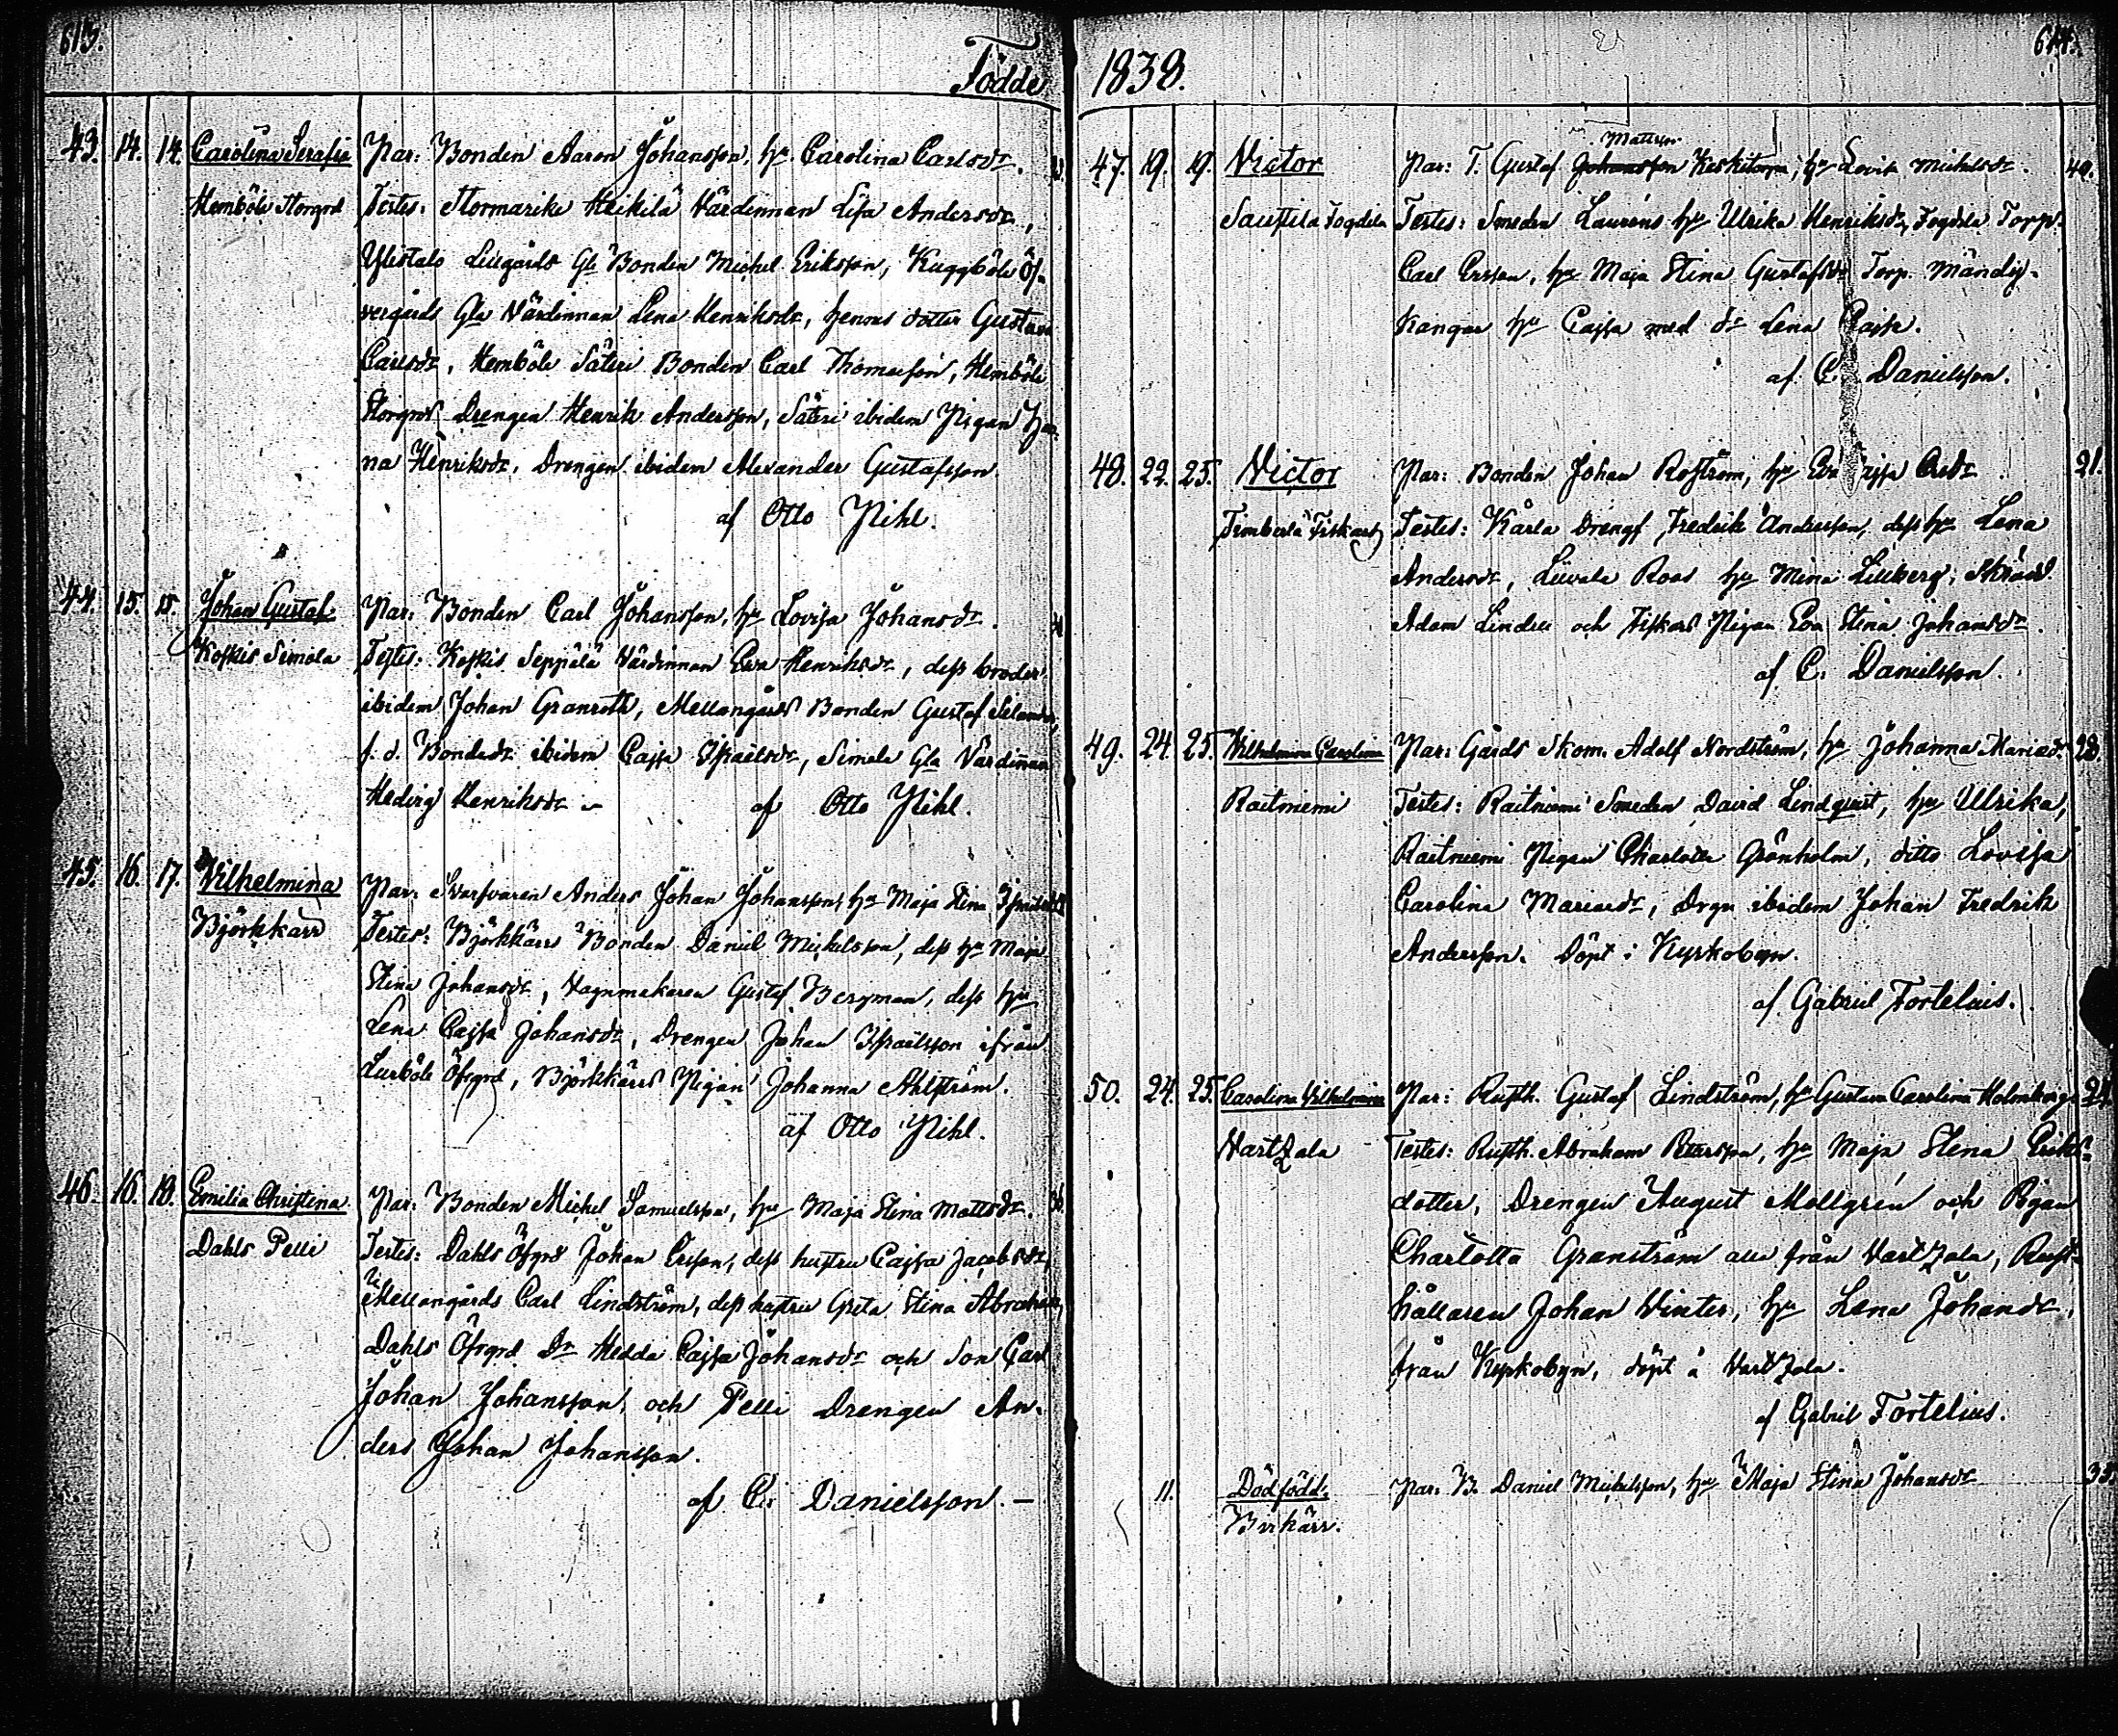 613.
Födde
43. 14. 14. Carolina Serafia Par: Bonden Aaron Johansson, hu Carolina Carlsdr.
Hemböle Storgrd Testes: Stormarike Heikilä Värdinnan Lisa Andersdr,
Ylistalo Lillgårds Gl. Bonden Michel Eriksson, Kuggböle Öf-
vergårds Gla Värdinnan Lena Henriksdr, hennes dotter Gustava
Carlsdr, Hemböle Säteri Bonden Carl Thomasson, Hemböle
Storgrds Drengen Henrik Andersson, Säteri ibidem Pigan
na Henriksdr, Drengen ibidem Alexander Gustafsson.
af Otto Pihl.
44. 15. 15. Johan Gustaf Par: Bonden Carl Johansson, hu Lovisa Johansdr.
Koskis Simola Testes: Koskis Seppälä Värdinnan Eva Henriksdr, dess broder
ibidem Johan Granroth, Mellangårds Bonden Gustaf
f. d. Bondedr ibidem Cajsa Israelsdr, Simola Gla Värdinnan
Hedvig Henriksdr af Otto Pihl.
45. 16. 17. Vilhelmina Par: Svarfvaren Anders Johan Johansson, hu Maja Stina
Björkkärr Testes: Björkkärrs Bonden Daniel Michelsson, dess hu Maja
Stina Johansdr, Vagnmakaren Gustaf Bergman, dess hu
Lena Cajsa Johansdr, Drengen Johan Israelsson ifrån
Lurböle Öfrgrd, Björkkärrs Pigan Johanna Ahlström.
af Otto Pihl.
46. 16. 18. Emilia Christina Par: Bonden Michel Samuelsson, hu Maja Stina Mattsdr.
Dahls Pelli Testes: Dahls Öfrgrd Johan Ersson, dess hustru Cajsa Jacobsdr,
Mellangårds Carl Lindström, dess hustru Greta Stina
Dahls Öfrgrd Dr Hedda Cajsa Johansdr och Son Carl
Johan Johansson, och Pelli Drengen An-
ders Johan Johansson.
af C. Danielsson. —
1838.
614.
Mattsson
47. 19. 19. Victor Par: T. Gustaf Johansson Keskitorpa, hu Lovisa Michelsdr. 40.
Saustila Fogdila Testes: Smeden Laurens hu Ulrika Henriksdr, Fogdila Torp.
Carl Ersson, hu Maja Stina Gustafsdr Torp. Mändy-
kangas hu Cajsa med dr Lena Cajsa.
af C. Danielsson.
48. 22. 25. Victor Par: Bonden Johan Roström, hu Eva Cajsa 21.
Fiskars Testes: Kårla Drengf Fredrik Andersson, dess hu Lena
Andersdr, Roos hu Mina Lillberg,
Adam och Fiskars Pigan Eva Stina Johansdr.
af C. Danielsson.
49. 24. 25. Vilhelmina Carolina Par: Gårds Skom. Adolf Nordström, hu Johanna Mariædr. 28.
Raitniemi Testes: Raitniemi Smeden David Lindqvist, hu Ulrika,
Raitniemi Pigan Charlotta Grönholm, ditto Lovisa
Carolina Mariædr, Drgn ibidem Johan Fredrik
Andersson. Döpt i Kyrkobyn.
af Gabriel Fortelius.
50. 24. 25. Carolina Vilhelmina Par: Rusth. Gustaf Lindström, hu Gustava Carolina Holmberg. 24.
Vartzala Testes: Rusth. Abraham Pettersson, hu Maja Stina Eriks-
dotter, Drengen August Mellgrén och Pigan
Charlotta Granström alla från Vartzala, Rust-
hållaren Johan Winter, hu Lena Johansdr,
från Kyrkobyn, döpt å Vartzala.
af Gabriel Fortelius.
11. Dödfödd. Par: B. Daniel Michelsson, hu Maja Stina Johansdr 35.